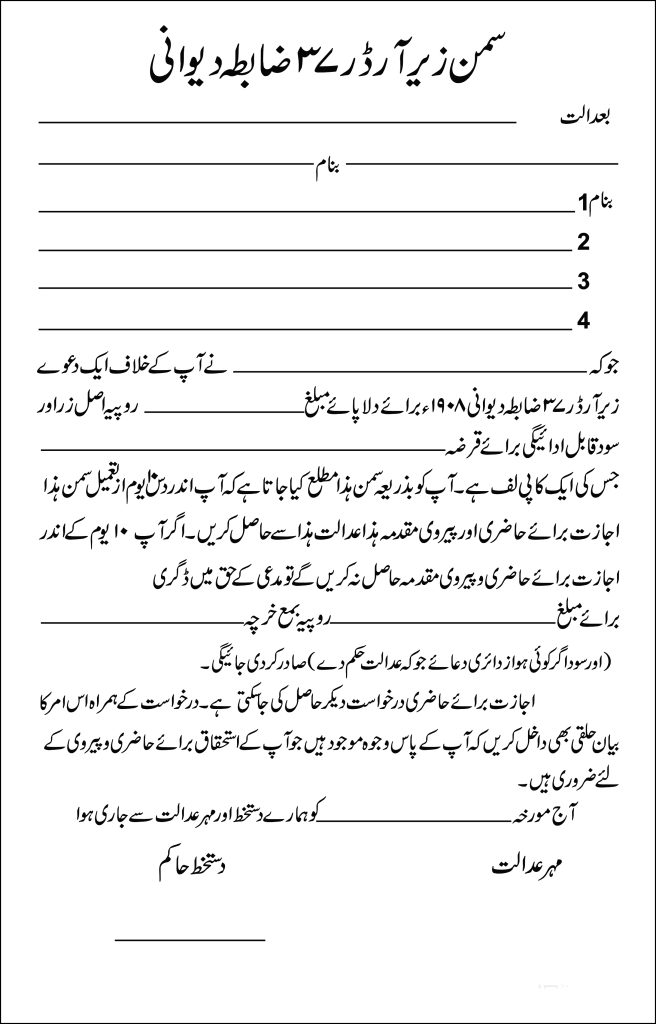 سمن زیر آرڈر ۳۷ ضابطہ دیوانی
بعدالت ____________________
____________________ بنام ____________________
بنام 1 ____________________
2 ____________________
3 ____________________
4 ____________________
جو کہ ____________________ نے آپ کے خلاف ایک دعوے
زیر آرڈر ۳۷ ضابطہ دیوانی ۱۹۰۸ء برائے دلا پائے مبلغ ____________________ روپیہ اصل زر اور
سود قابل ادائیگی برائے قرضہ ____________________
جس کی ایک کاپی لف ہے۔ آپ کو بذریعہ سمن ہذا مطلع کیا جاتا ہے کہ آپ اندر دس یوم از تعمیل سمن ہذا
اجازت برائے حاضری اور پیروی مقدمہ ہذا عدالت ہذا سے حاصل کریں۔ اگر آپ ۱۰ یوم کے اندر
اجازت برائے حاضری و پیروی مقدمہ حاصل نہ کریں گے تو مدعی کے حق میں ڈگری
برائے مبلغ ____________________ روپیہ بمع خرچہ ____________________
(اور سود اگر کوئی ہو از دائری دعائے جو کہ عدالت حکم دے) صادر کردی جائیگی۔
اجازت برائے حاضری درخواست دیکر حاصل کی جاسکتی ہے۔ درخواست کے ہمراہ اس امر کا
بیان حلفی بھی داخل کریں کہ آپ کے پاس وجوہ موجود ہیں جو آپ کے استحقاق برائے حاضری و پیروی کے
لئے ضروری ہیں۔
آج مورخہ ____________________ کو ہمارے دستخط اور مہر عدالت سے جاری ہوا
مہر عدالت دستخط حاکم
____________________